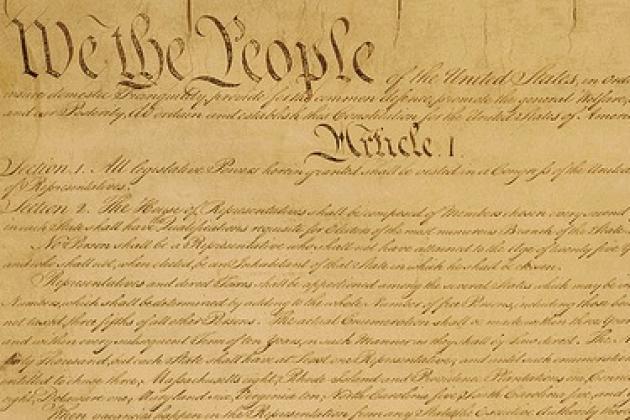 We the People of the United States, in Orde
insure domestic Tranquility, provide for the common defence, promote the general Welfare,
and our Posterity, do ordain and establish this Constitution for the United States of Ameri
Article. I.
Section. 1. All legislative Powers herein granted shall be vested in a Congress of the United
of Representatives.
Section. 2. The House of Representatives shall be composed of Members chosen every second
in each State shall have Qualifications requisite for Electors of the most numerous Branch of the State
No Person shall be a Representative who shall not have attained to the Age of twenty five Y
and who shall not, when elected, be an Inhabitant of that State in which he shall be chosen.
Representatives and direct Taxes shall be apportioned among the several States which may be in
Numbers, which shall be determined by adding to the whole Number of free Persons, including those bou
not taxed, three fifths of all other Persons. The actual Enumeration shall be made within three Year
and within every subsequent Term of ten Years, in such Manner as they shall by Law direct. The N
thirty Thousand, but each State shall have at Least one Representative; and until such enumeration
entitled to chuse three, Massachusetts eight, Rhode-Island and Providence Plantations one, Conne
eight, Delaware one, Maryland six, Virginia ten, North Carolina five, South Carolina five, and
When vacancies happen in the Representation from any State, the Executive Authority there